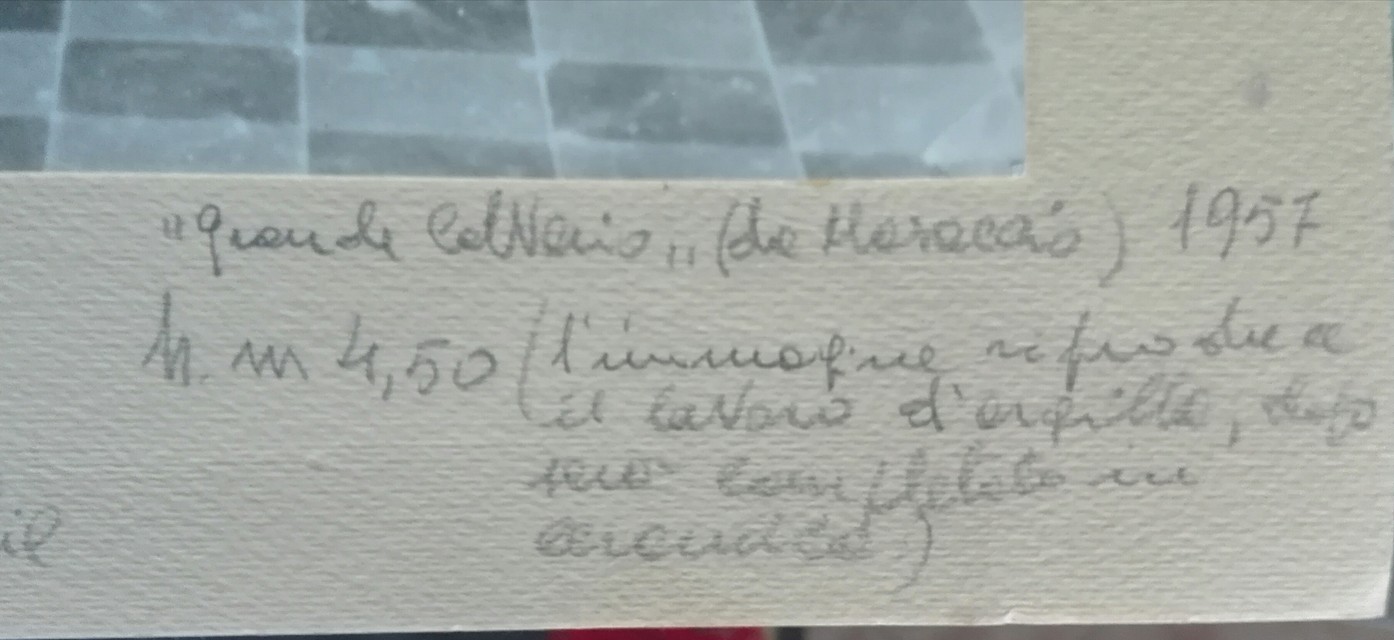 "Grande Calvario" (da Masaccio) 1957
h. m 4,50 (l'immagine riproduce
il lavoro d'argilla, dopo
completato in
il